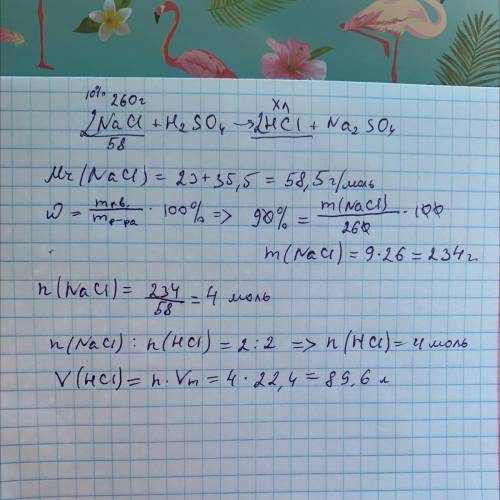 10% 260г
Xл
2NaCl + H₂SO₄ → 2HCl + Na₂SO₄
58
Mr(NaCl) = 23 + 35,5 = 58,5 г/моль
ω = mр.в. / mр-ра · 100% => 90% = m(NaCl) / 260 · 100
m(NaCl) = 9 · 26 = 234 г.
n(NaCl) = 234 / 58 = 4 моль
n(NaCl) : n(HCl) = 2 : 2 => n(HCl) = 4 моль
V(HCl) = n · Vm = 4 · 22,4 = 89,6 л